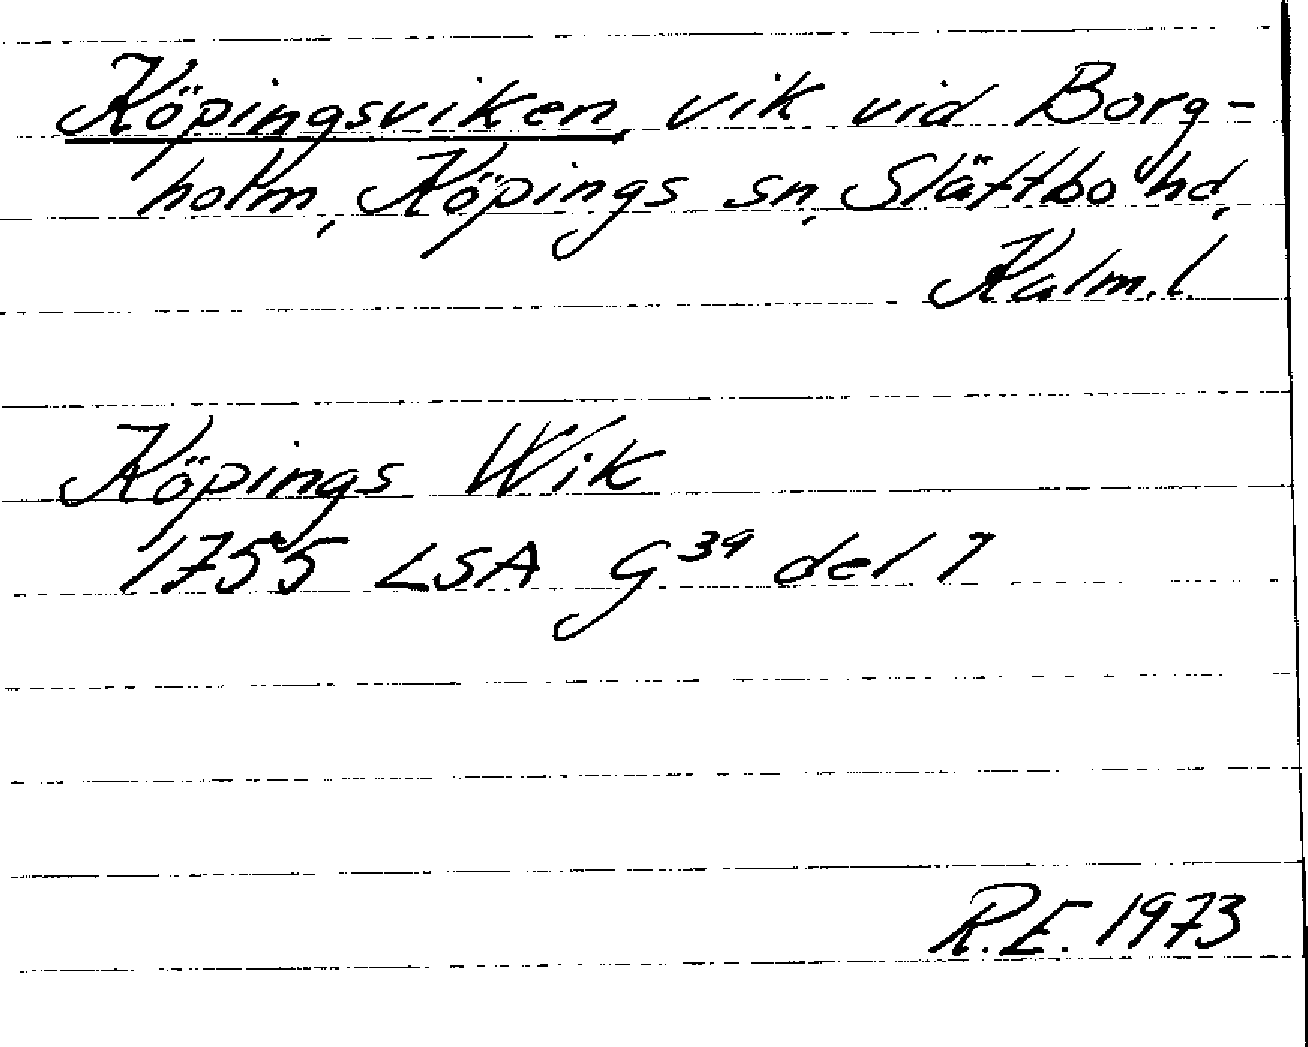 Köpingsviken, vik vid Borg-
holm, Köpings sn, Slättbo hd,
Kalm. l.
Köpings Wik
1755 LSA G 39 del 7
R.E. 1973